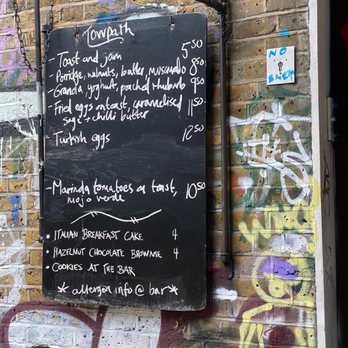 Towpath
- Toast and jam 5 50
- Porridge, walnuts, butter, muscovado 8 50
- Granola, yoghurt, poached rhubarb 9 50
- Fried eggs on toast, caramelised 11 50
sage + chilli butter
- Turkish eggs 12 50
- Marinda tomatoes on toast, 10 50
mojo verde
• ITALIAN BREAKFAST CAKE 4
• HAZELNUT CHOCOLATE BROWNIE 4
• COOKIES AT THE BAR
* allergen info @ bar *
NO